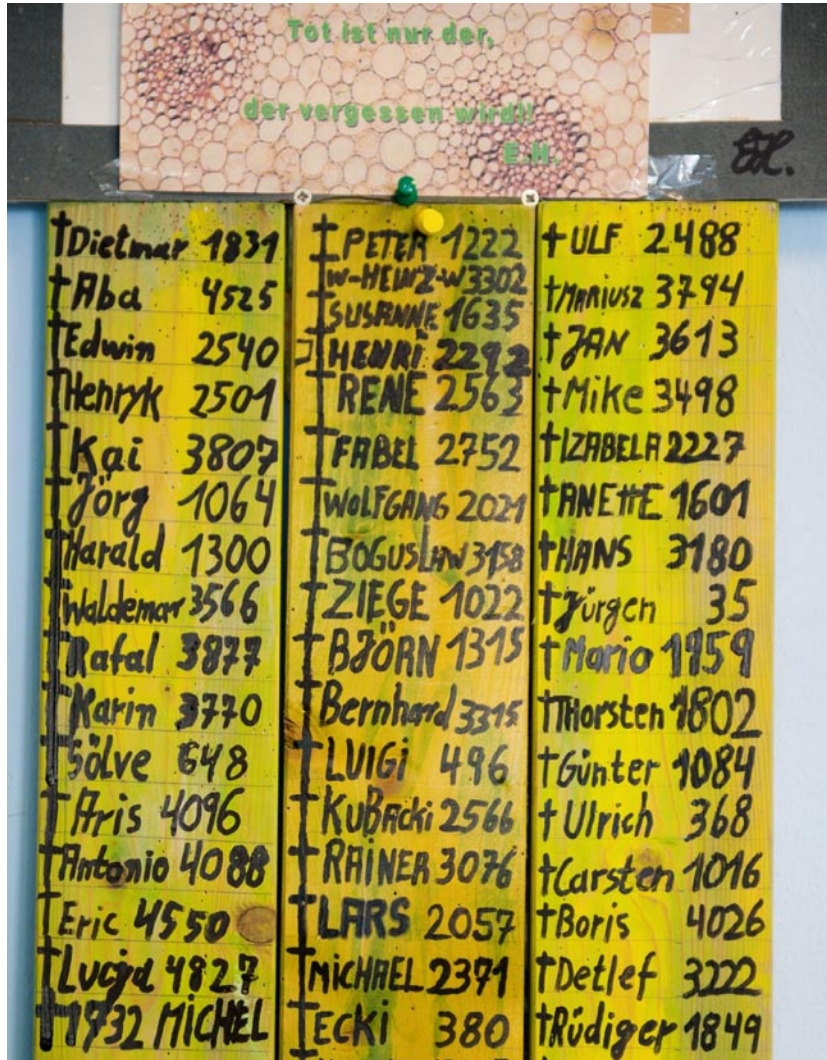 Tot ist nur der,
der vergessen wird!!
E.H.
EH.
†Dietmar 1831
†Aba 4525
†Edwin 2540
†Henryk 2501
†Kai 3807
†Jörg 1064
†Harald 1300
†Waldemar 3566
†Rafal 3877
†Karin 3770
†Sölve 648
†Aris 4096
†Antonio 4088
†Eric 4550
†Lucjd 4827
†1732 MICHEL
†PETER 1222
†W-HEINZ-W 3302
†SUSANNE 1635
†HENRI 2292
†RENÉ 2563
†FABEL 2752
†WOLFGANG 2021
†BOGUSLAW 3158
†ZIEGE 1022
†BJÖRN 1315
†Bernhard 3315
†LUIGI 496
†KUBACKi 2566
†RAINER 3076
†LARS 2057
†MiCHAEL 2371
†ECKi 380
†ULF 2488
†MARiUSZ 3794
†JAN 3613
†Mike 3498
†IZABELA 2227
†ANETTE 1601
†HANS 3180
†Jürgen 35
†Mario 1959
†THorsten 1802
†Günter 1084
†Ulrich 368
†Carsten 1016
†Boris 4026
†Detlef 3222
†Rüdiger 1849